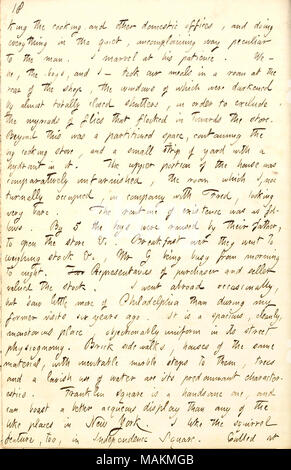 18
king the cooking and other domestic offices, and doing
everything in the quiet, uncomplaining way peculiar
to the man. I marvel at his patience. We —
the boys, and I — took our meals in a room at the
rear of the shop, the windows of which were darkened
by almost totally closed shutters, in order to exclude
the myriads of flies that flocked in towards the store.
Beyond this was a partitioned space, containing the
cooking stove, and a small strip of yard with a
hydrant in it. The upper portion of the house was
comparatively unfurnished, the room which I, noc-
turnally occupied, in company with Fred, looking
very bare. The routine of existence was as fol-
lows. By 5 the boys were roused by their father,
to open the store &c. Breakfast over they went to
weighing stock &c, Mr G being busy from morning
to night. Representatives of purchaser and seller
valued the stock. I went abroad occasionally,
but saw little more of Philadelphia than during my
former visits six years ago. It is a spacious, cleanly,
monotonous place, objectionably uniform in its street
physiognomy. Brick side-walks, houses of the same
material, with inevitable marble steps to them, trees
and a lavish use of water are its predominant character-
istics. Franklin Square is a handsome one, and
can boast a better aqueous display than any of the
like places in New York. I like the squirrel
feature, too, in Independence Square. Called at
alamy
Image ID: MAKMGB
www.alamy.com